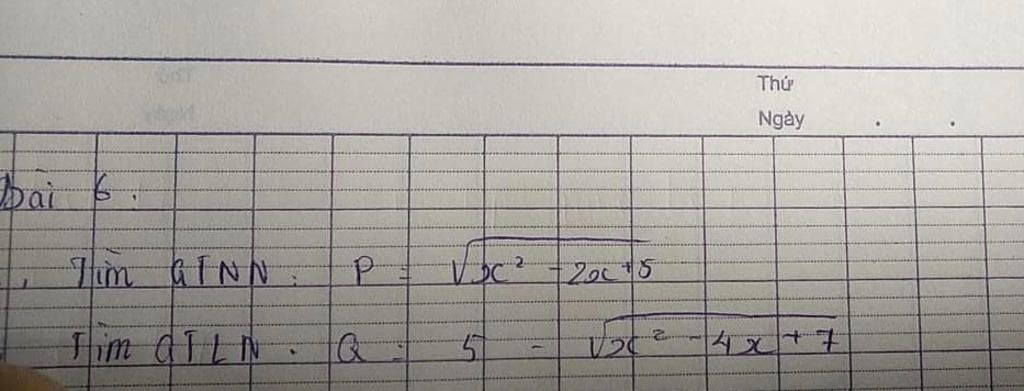 Thứ
Ngày . .
Bài 6.
, Tìm GTNN: P = √x² - 2x + 5
Tìm GTLN. Q = 5 - √x² - 4x + 7